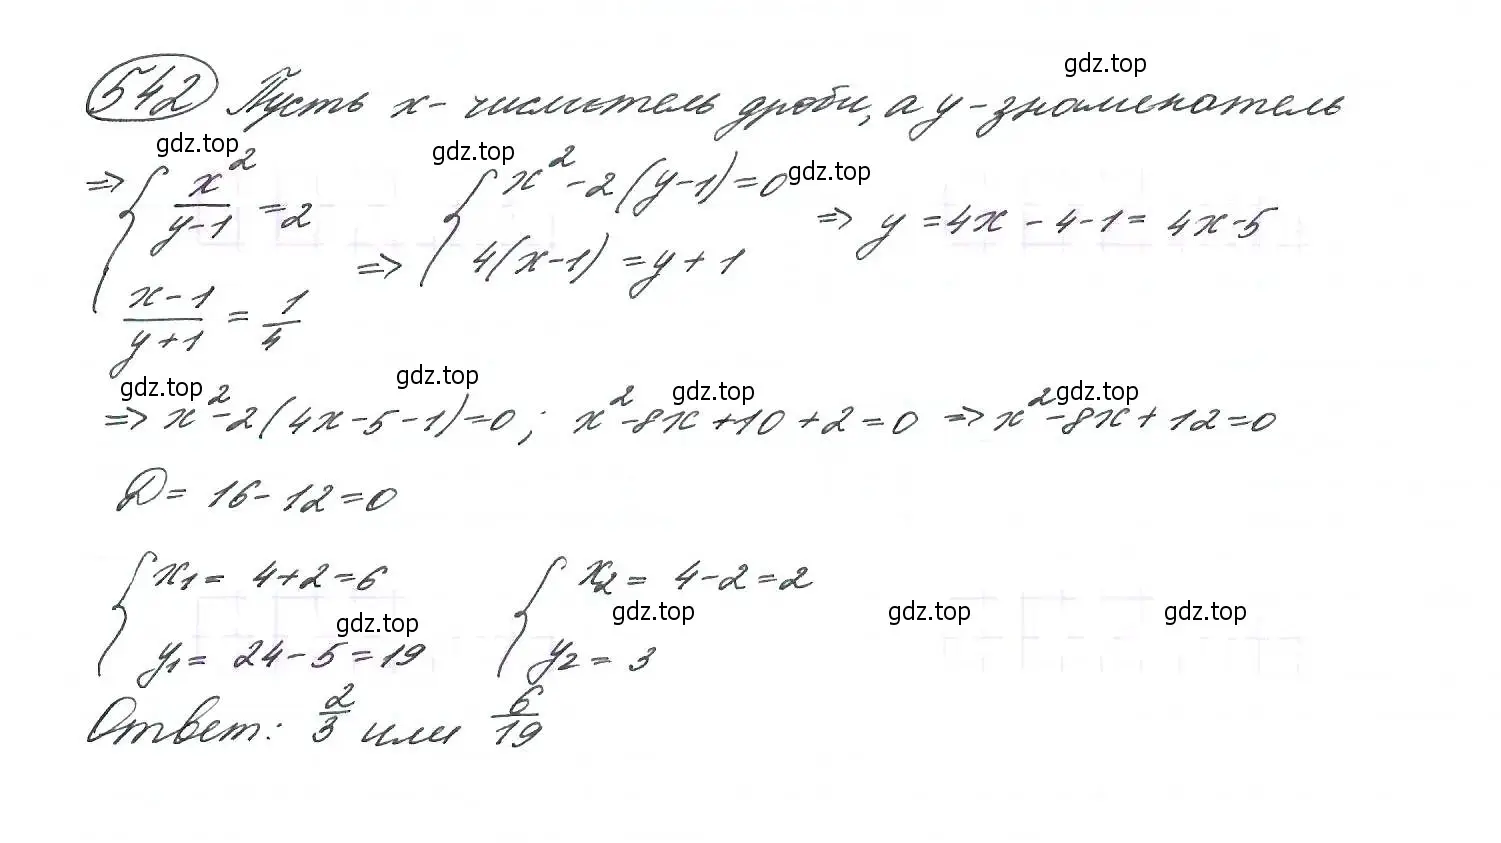 gdz.top
542 Пусть x - числитель дроби, а y - знаменатель
gdz.top gdz.top gdz.top
=> { x²/(y-1) = 2 => { x² - 2(y-1) = 0 => y = 4x - 4 - 1 = 4x - 5
(x-1)/(y+1) = 1/4 4(x-1) = y + 1
gdz.top gdz.top gdz.top gdz.top
=> x² - 2(4x - 5 - 1) = 0 ; x² - 8x + 10 + 2 = 0 => x² - 8x + 12 = 0
D = 16 - 12 = 0
{ x₁ = 4 + 2 = 6 { x₂ = 4 - 2 = 2
gdz.top gdz.top gdz.top gdz.top
y₁ = 24 - 5 = 19 y₂ = 3
Ответ: 2/3 или 6/19